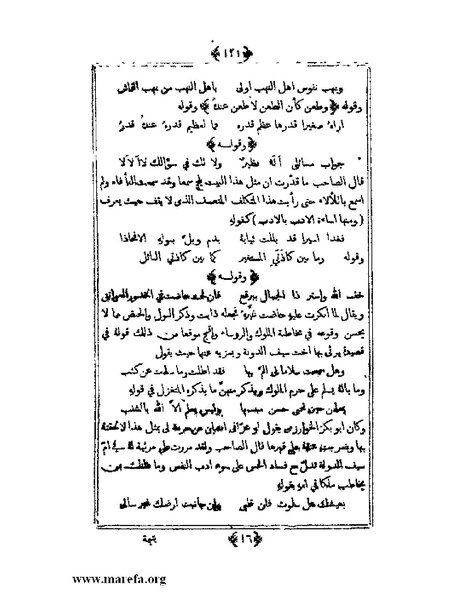 ﴿١٢١﴾
ونهب نفوس اهل النهب اولى باهل النهب من نهب القماش
وقوله ﴿وطعن كأن الطعن لا طعن عنده﴾ وقوله
اراه صغيرا قدرها عظم قدره فما لعظيم قدره عنده قدر
﴿وقوله﴾
جواب مسائلي أله نظير ولا لك في سؤالك لا ألا لا
قال الصاحب ما قدرت ان مثل هذا البيت يلج سمعا وقد سمعت بالفأفاء ولم
اسمع باللألاء حتى رأيت هذا المتكلف المتعسف الذي لا يقف حيث يعرف
(ومنها اساءة الادب بالادب) كقوله
فغدا اسيرا قد بللت ثيابه بدم وبل ببوله الافخاذا
وقوله وما بين كاذتي المستغير كما بين كاذتي البائل
﴿وقوله﴾
خف الله واستر ذا الجمال ببرقع فان لحت حاضت في الخدور العواتق
ويقال لما انكرت عليه حاضت غيره فجعله ذابت وذكر البول والحيض مما لا
يحسن وقوعه في مخاطبة الملوك والرؤساء واقبح موقعا من ذلك قوله في
قصيدة يرثي بها اخت سيف الدولة ويعزيه عنها حيث يقول
وهل سمعت سلاما لي الم بها فقد اطلت وما سلمت عن كثب
وما باله يسلم على حرم الملوك ويذكر منهن ما يذكره المتغزل في قوله
يعلمن حين تحيى حسن مبسمها وليس يعلم الا الله بالشنب
وكان ابو بكر الخوارزمي يقول لو عزاني انسان عن حرمة لي بمثل هذا لالحقته
بها وضربت عنقه على قبرها قال الصاحب ولقد مررت على مرثية له في ام
سيف الدولة تدل مع فساد الحس على سوء ادب النفس وما ظنك بمن
يخاطب ملكا في امه بقوله
بعيشك هل سلوت فان قلبي وان جانبت ارضك غير سالي
﴿١٦﴾ يتيمة
www.marefa.org